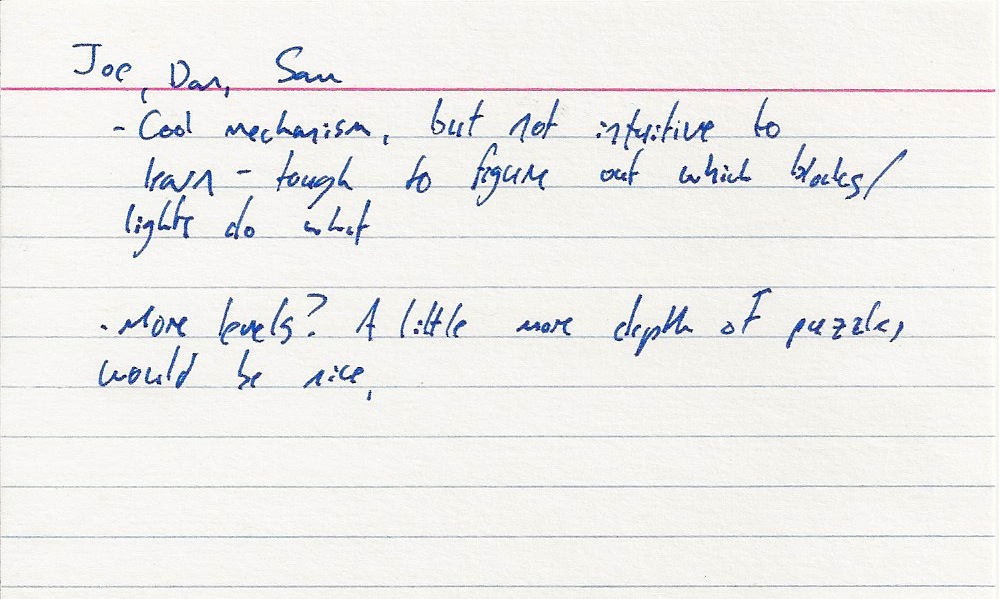 Joe, Dan, Sam
- Cool mechanism, but not intuitive to
learn - tough to figure out which blocks/
lights do what
- More levels? A little more depth of puzzles
would be nice.